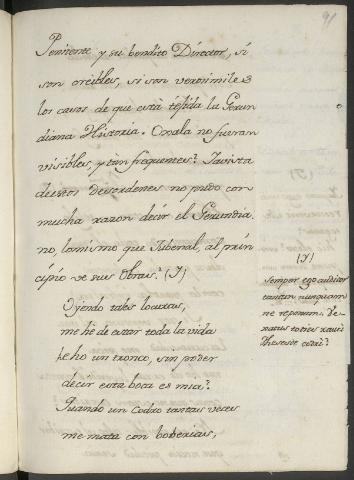 91
Penitente y su bendito Director, si
son creibles, si son verosimiles
los casos de que està tegida la Gerun
diana Historia. Oxala no fueran
visibles, y tan frequentes? Y a vista
de estos desordenes no pudo con
mucha razon decir el Gerundia.
no, lo mismo que Jubenal, al prin
cipio de sus obras? (J)
Oyendo tales locuras,
me hè de estar toda la vida
hecho un tronco, sin poder
decir esta boca es mia?
Quando un Codro tantas veces
me mata con boberias,
(J)
Semper ego auditor
tantum nunquam
ne reponam. Ve-
xatus toties rauci
Theseide codri?